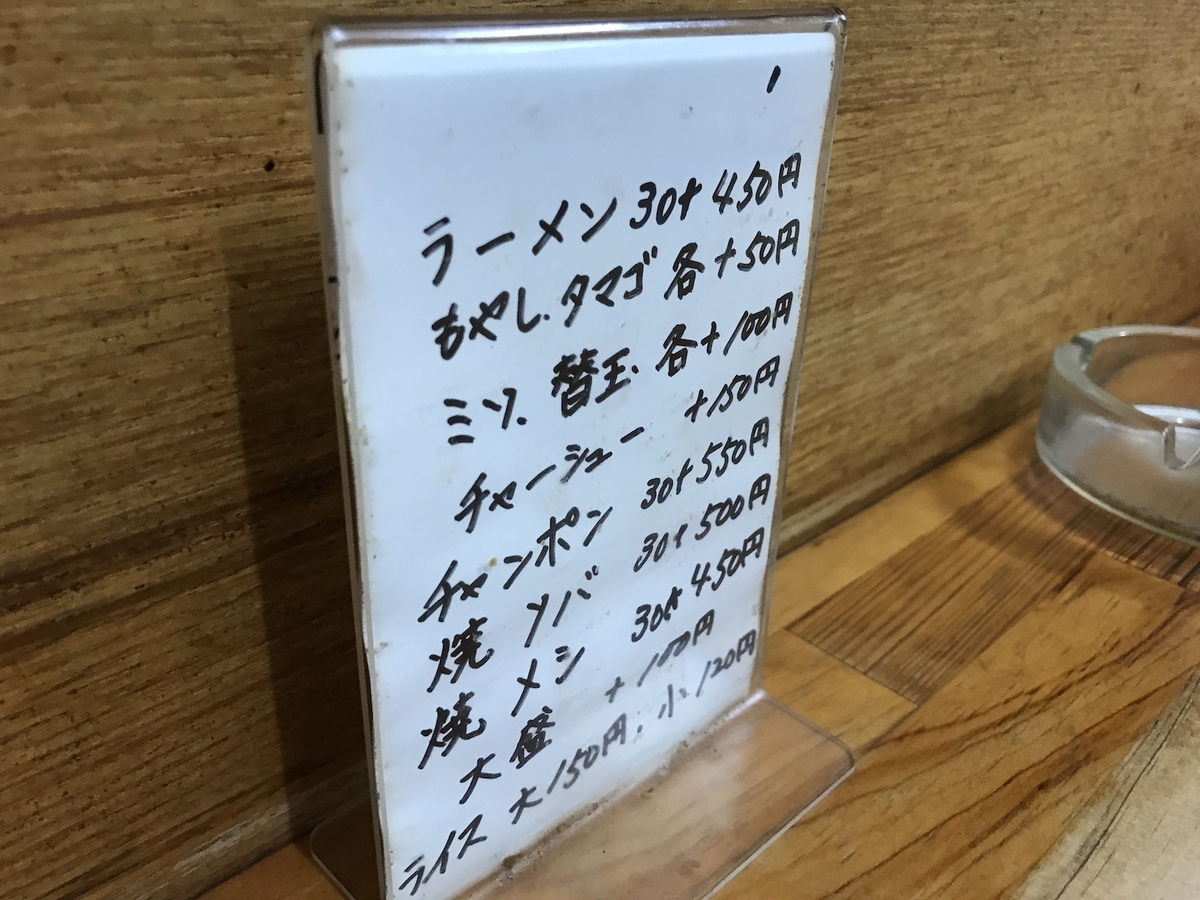 ラーメン 30+ 450円
もやし.タマゴ 各 +50円
ミソ. 替玉. 各+100円
チャーシュー +150円
チャンポン 30+550円
焼ソバ 30+500円
焼メシ 30+450円
大盛 +100円
ライス 大150円. 小120円